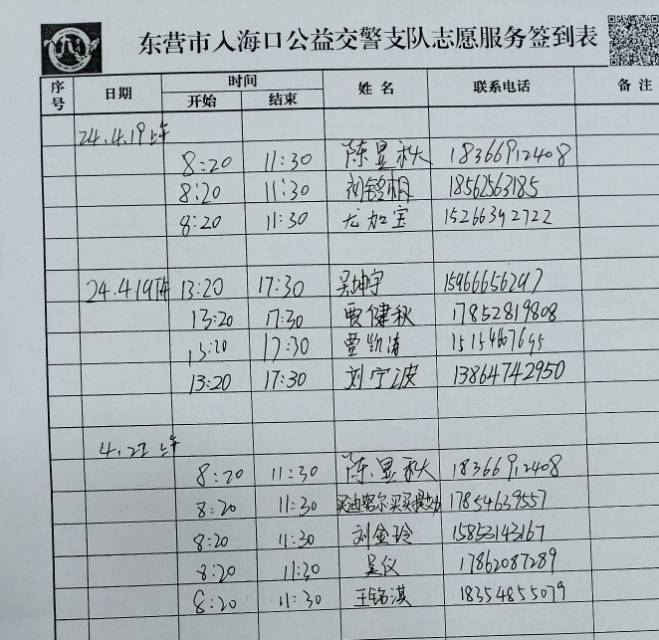 东营市入海口公益交警支队志愿服务签到表
序号 日期 时间 姓名 联系电话 备注
开始 结束
24.4.19上午
8:20 11:30 陈昱秋 18366912408
8:20 11:30 18562563185
8:20 11:30 尤加宝 15266392722
24.4.19下午 13:20 17:30 吴坤宇 15966656297
13:20 17:30 贾健秋 17852819808
13:20 17:30 贾凯涛
13:20 17:30 刘宁波 13864742950
上午
8:20 11:30 陈昱秋 18366912408
8:20 11:30 17854639557
8:20 11:30 刘金玲 15853143167
8:20 11:30 吴仪 17862087289
8:20 11:30 王铭淇 18354855079